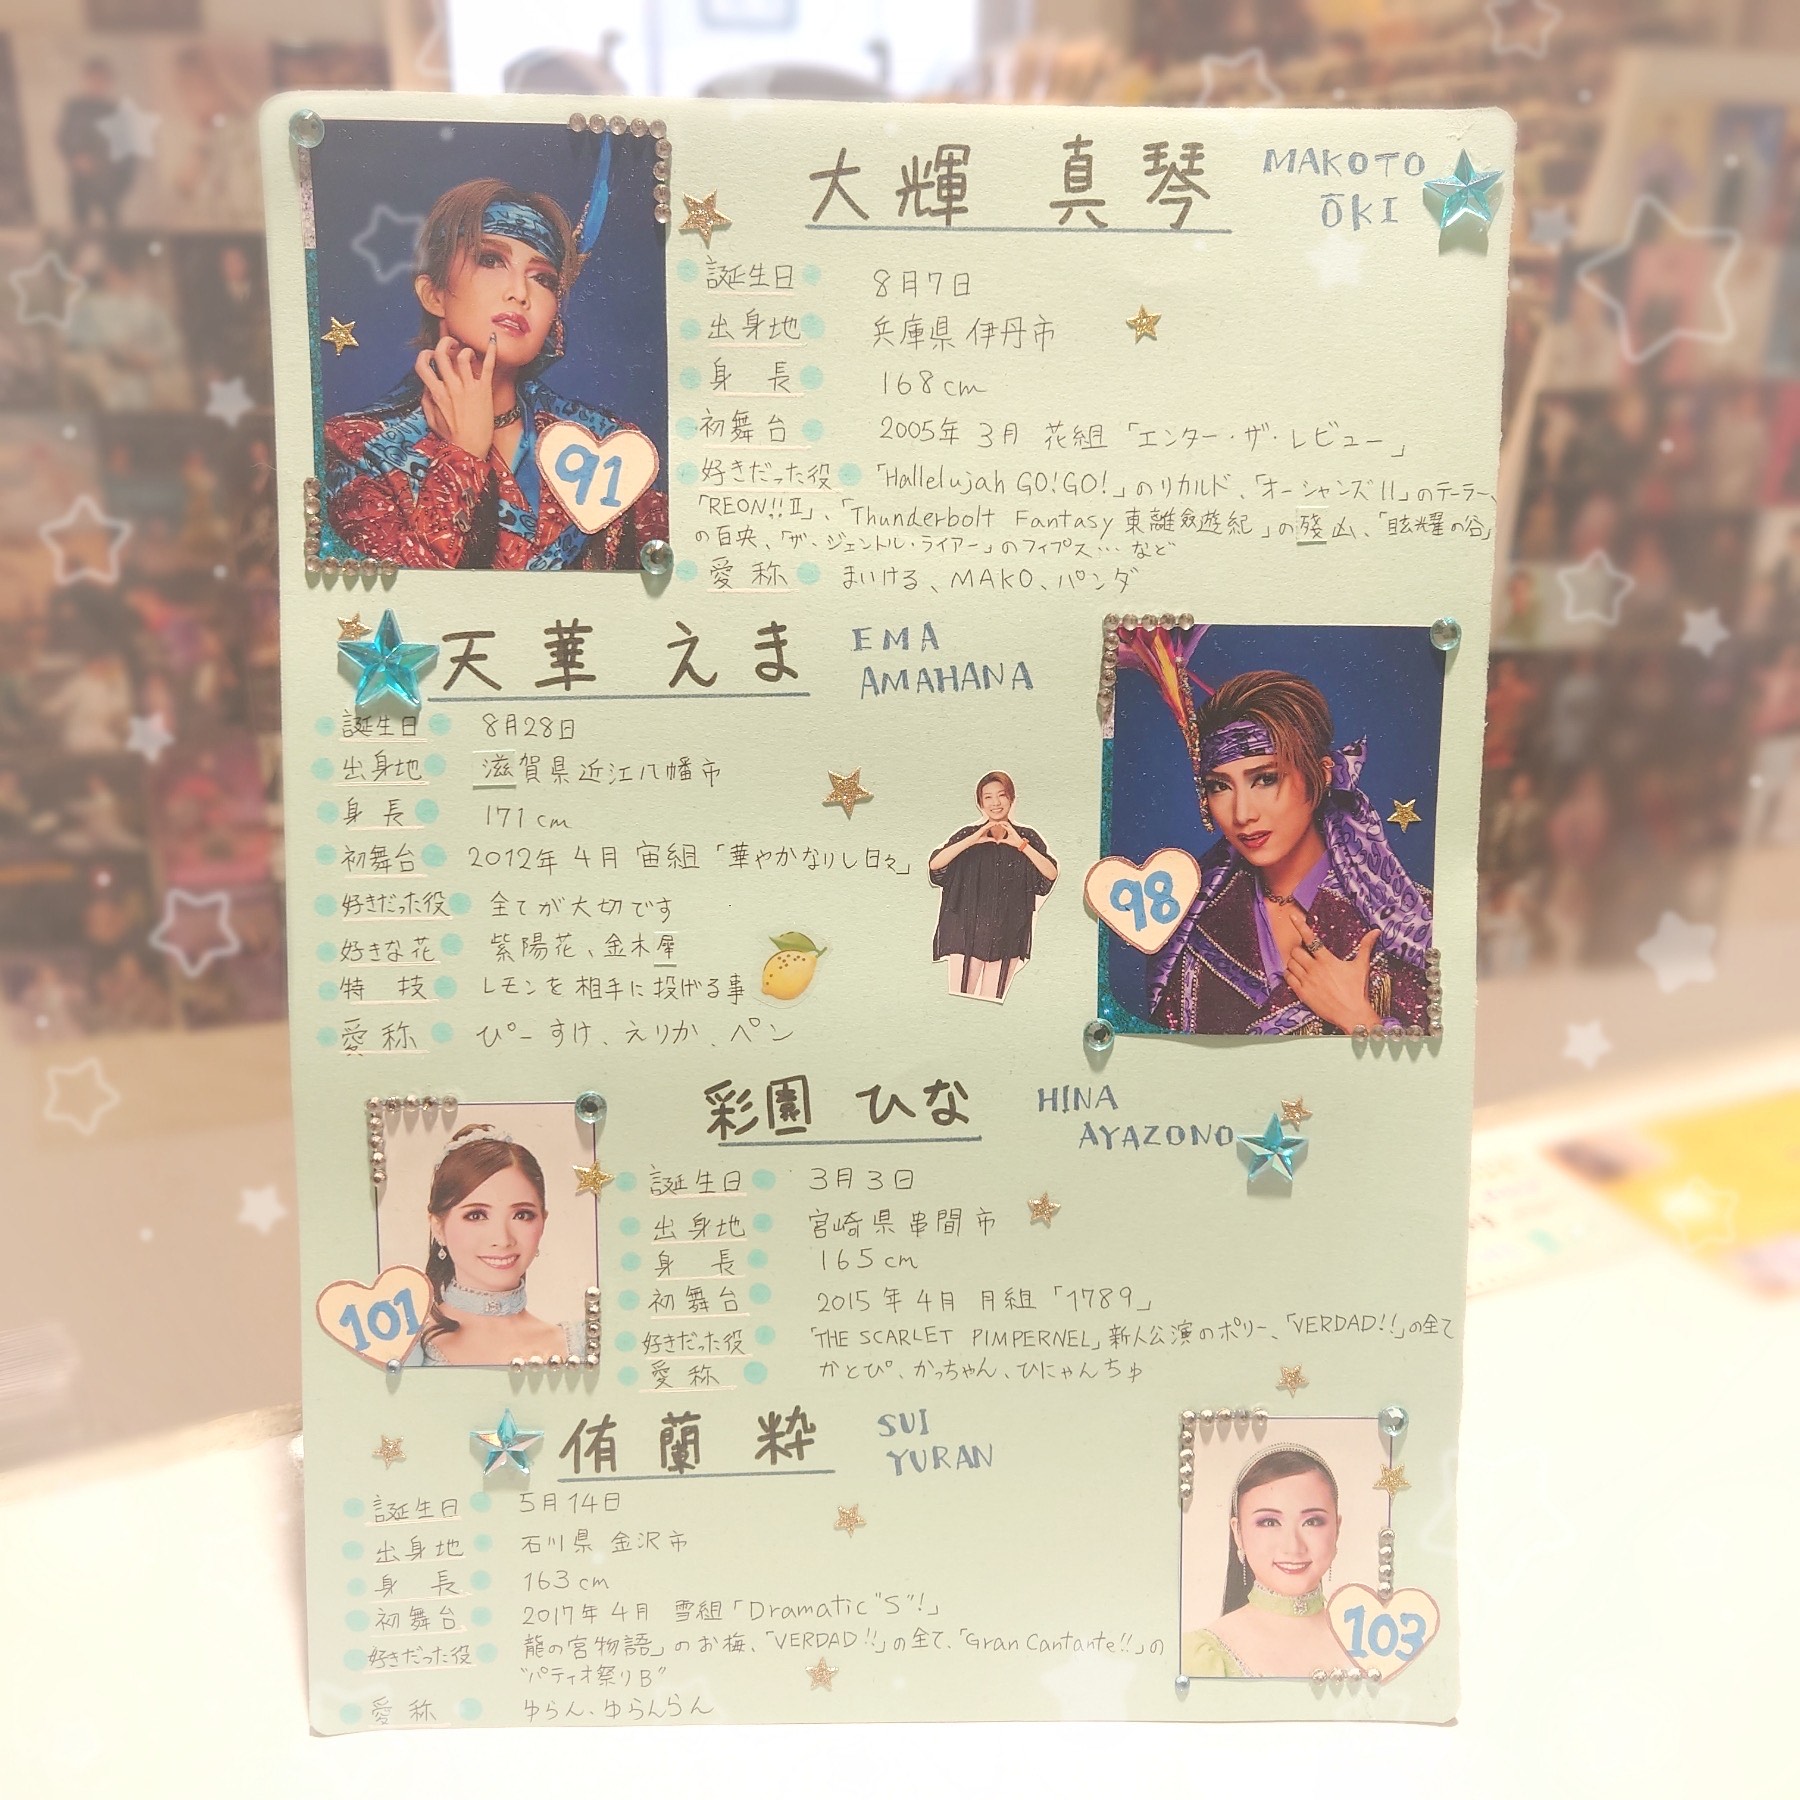 大輝 真琴 MAKOTO ŌKI
91
誕生日 8月7日
出身地 兵庫県 伊丹市
身長 168cm
初舞台 2005年 3月 花組「エンター・ザ・レビュー」
好きだった役 「Hallelujah GO!GO!」のリカルド、「オーシャンズ11」のテーラー、
「REON!!Ⅱ」、「Thunderbolt Fantasy 東離劍遊紀」の殘凶、「眩耀の谷」
の百央、「ザ・ジェントル・ライアー」のフィプス…など
愛称 まいける、MAKO、パンダ
天華 えま EMA AMAHANA
98
誕生日 8月28日
出身地 滋賀県近江八幡市
身長 171cm
初舞台 2012年 4月 宙組「華やかなりし日々」
好きだった役 全てが大切です
好きな花 紫陽花、金木犀
特技 レモンを相手に投げる事
愛称 ぴーすけ、えりか、ペン
彩園 ひな HINA AYAZONO
101
誕生日 3月3日
出身地 宮崎県串間市
身長 165cm
初舞台 2015年 4月 月組「1789」
好きだった役 「THE SCARLET PIMPERNEL」新人公演のポリー、「VERDAD!!」の全て
愛称 かとぴ、かっちゃん、ひにゃんちゅ
侑蘭 粋 SUI YURAN
103
誕生日 5月14日
出身地 石川県 金沢市
身長 163cm
初舞台 2017年 4月 雪組「Dramatic "S"!」
好きだった役 龍の宮物語」のお梅、「VERDAD!!」の全て、「Gran Cantante!!」の
"パティオ祭りB"
愛称 ゆらん、ゆらんらん